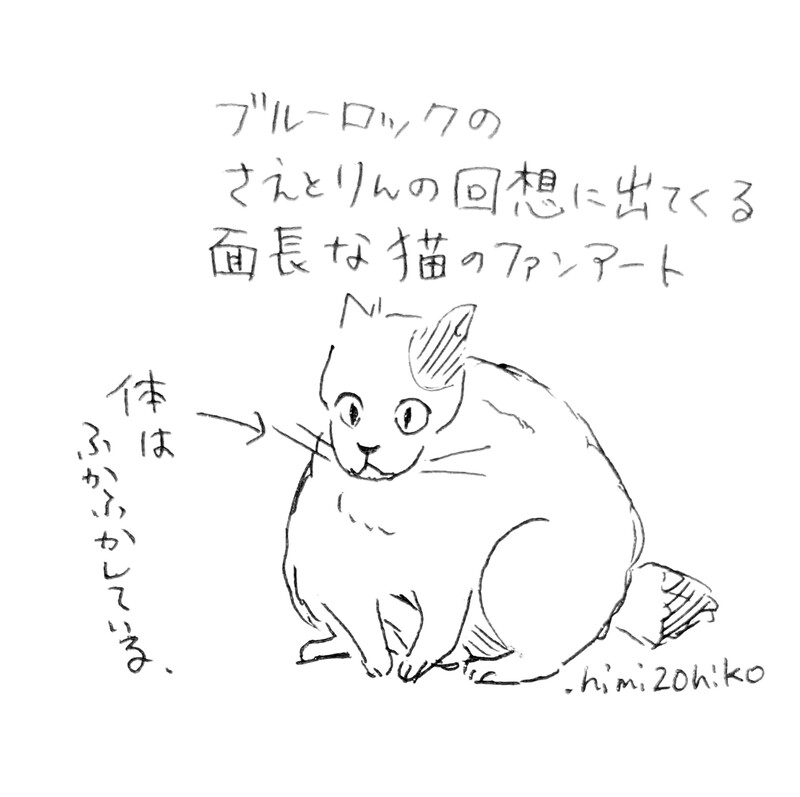 ブルーロックの
さえとりんの回想に出てくる
面長な猫のファンアート
体は
ふかふかしている、
.himizohiko